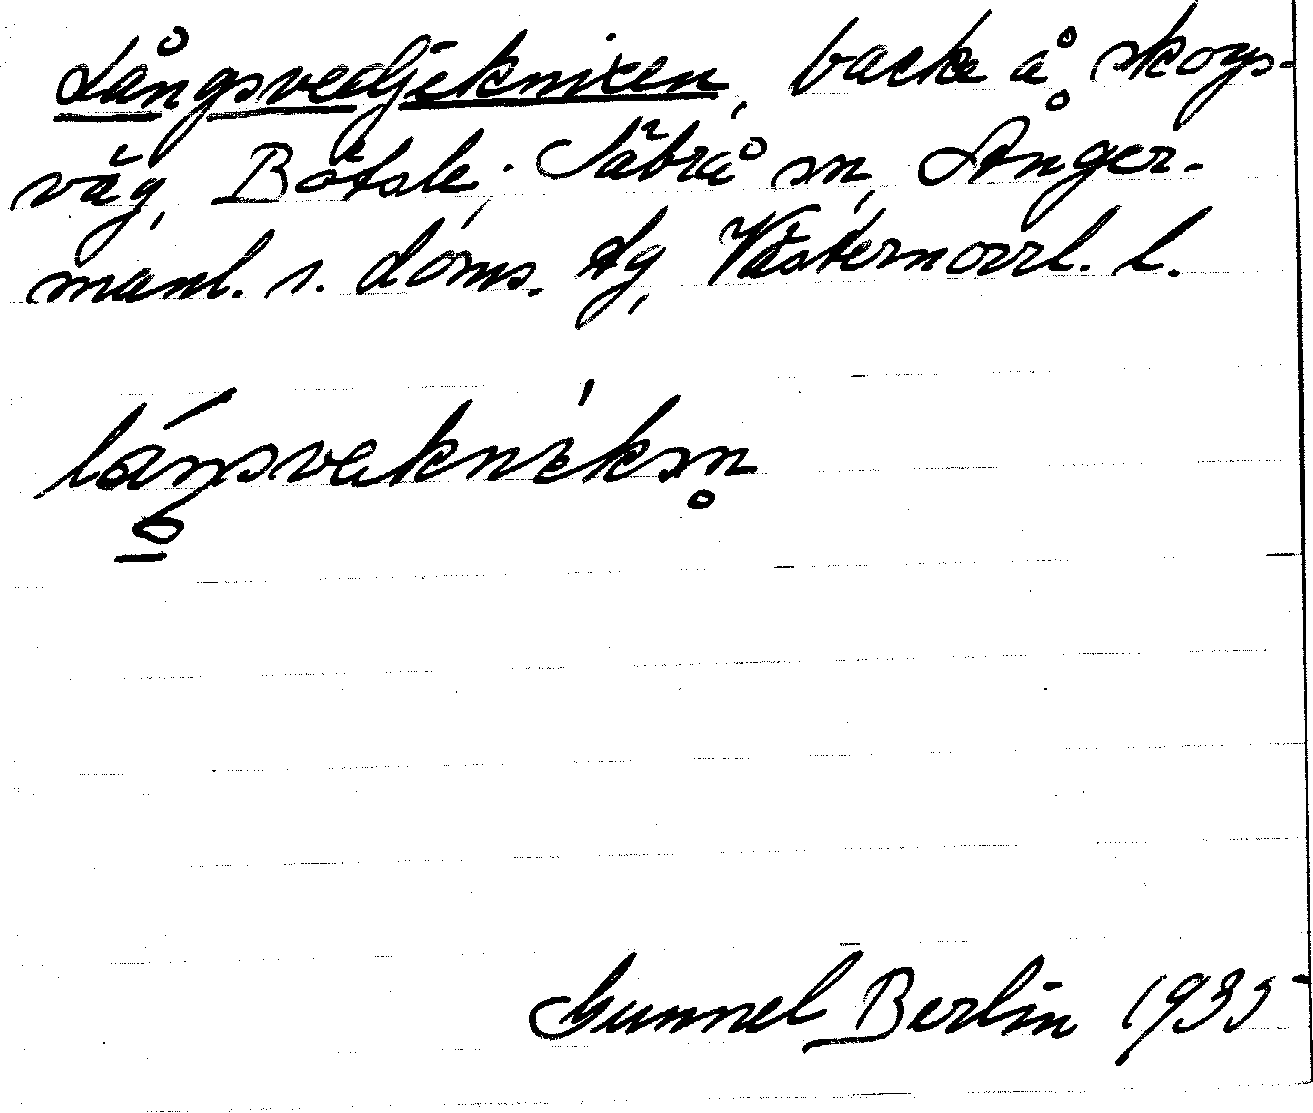 Långsvedjeknixen, backe å skogs-
väg, Bötsle, Säbrå sn, Ånger-
manl. s. doms. tg, Västernorrl. l.
Gunnel Berlin 1935